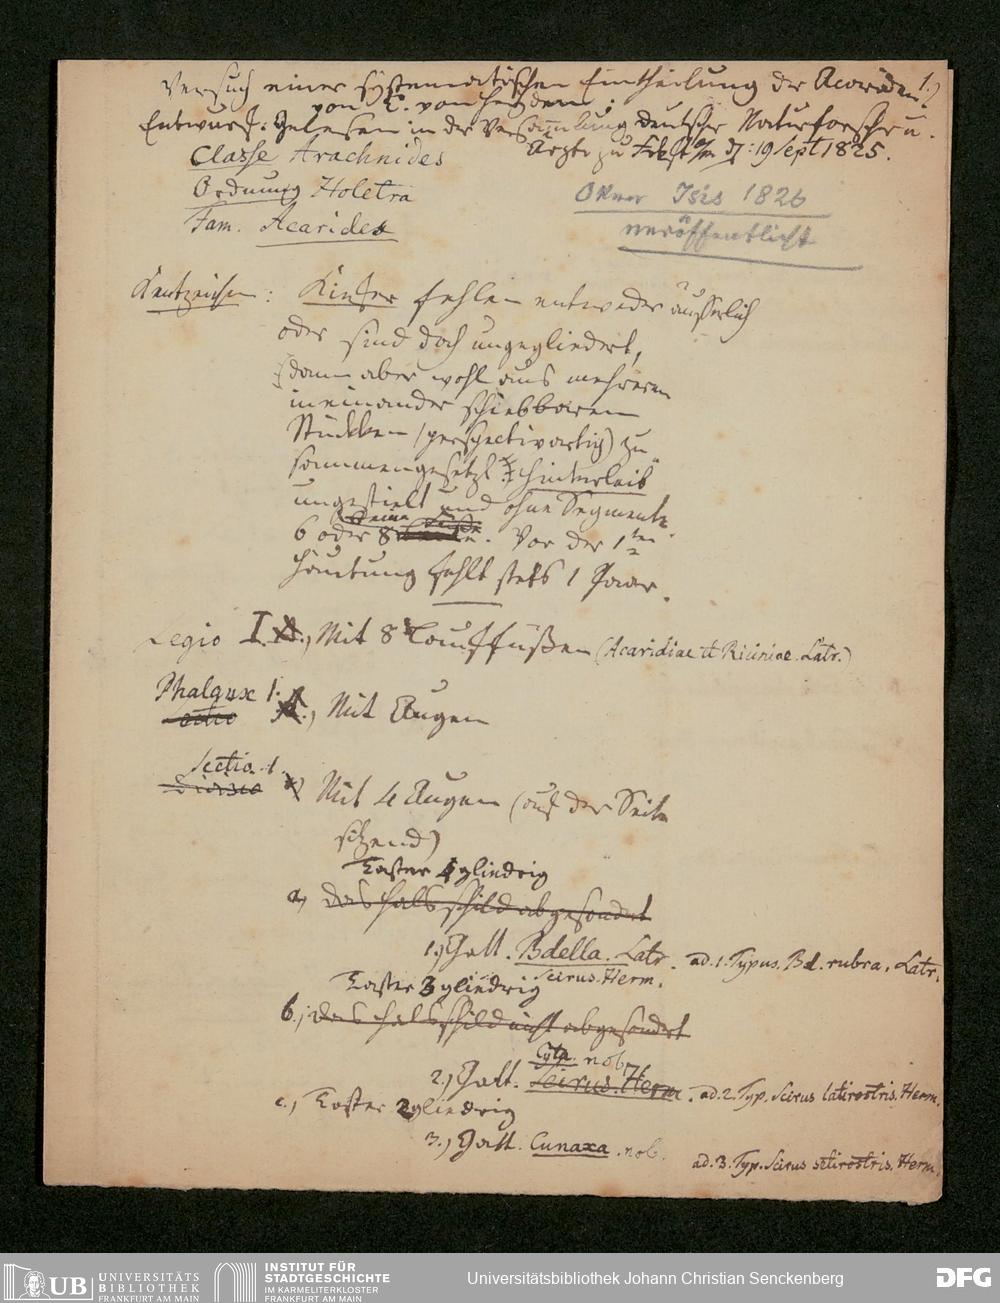 Versuch einer systematischen Eintheilung der Acariden 1.)
von C. von Heyden;
Entwurf: Gelesen in der Versam̄lung deutscher Naturforscher u.
Ärzte zu Frkft a/m d: 19 Sept 1825.
Classe Arachnides
Ordnung Holetra
Fam. Acarides
Oken Isis 1826
veröffentlicht
Kentzeichen: Kiefer fehlen entweder äusserlich
oder sind doch ungegliedert,
dann aber wohl aus mehreren
ineinander schiebbaren
Stücken (perspectivartig) zu
sammengesetzt. Hinterleib
ungestielt und ohne Segmente.
6 oder 8 Beine. Vor der 1ten
Häutung fehlt stets 1 Paar.
Legio I. Mit 8 Lauffüßen (Acaridiae et Riciniae. Latr.)
Phalanx 1. Mit Augen
Sectio 1. Mit 4 Augen (auf der Seite
sitzend)
Taster 4 gliedrig
a, das Halsschild abgesondert
1.) Gatt. Bdella. Latr. ad. 1. Typus. Bd. rubra. Latr.
Scirus. Herm.
Taster 3 gliedrig
b.) das Halsschild nicht abgesondert
nob.
2.) Gatt. Scirus. Herm. ad. 2. Typ. Scirus latirostris. Herm.
c.) Taster 2 gliedrig
3.) Gatt. Cunaxa. nob. ad. 3. Typ. Scirus setirostris. Herm.
UB UNIVERSITÄTS
BIBLIOTHEK
FRANKFURT AM MAIN
INSTITUT FÜR
STADTGESCHICHTE
IM KARMELITERKLOSTER
FRANKFURT AM MAIN
Universitätsbibliothek Johann Christian Senckenberg
DFG